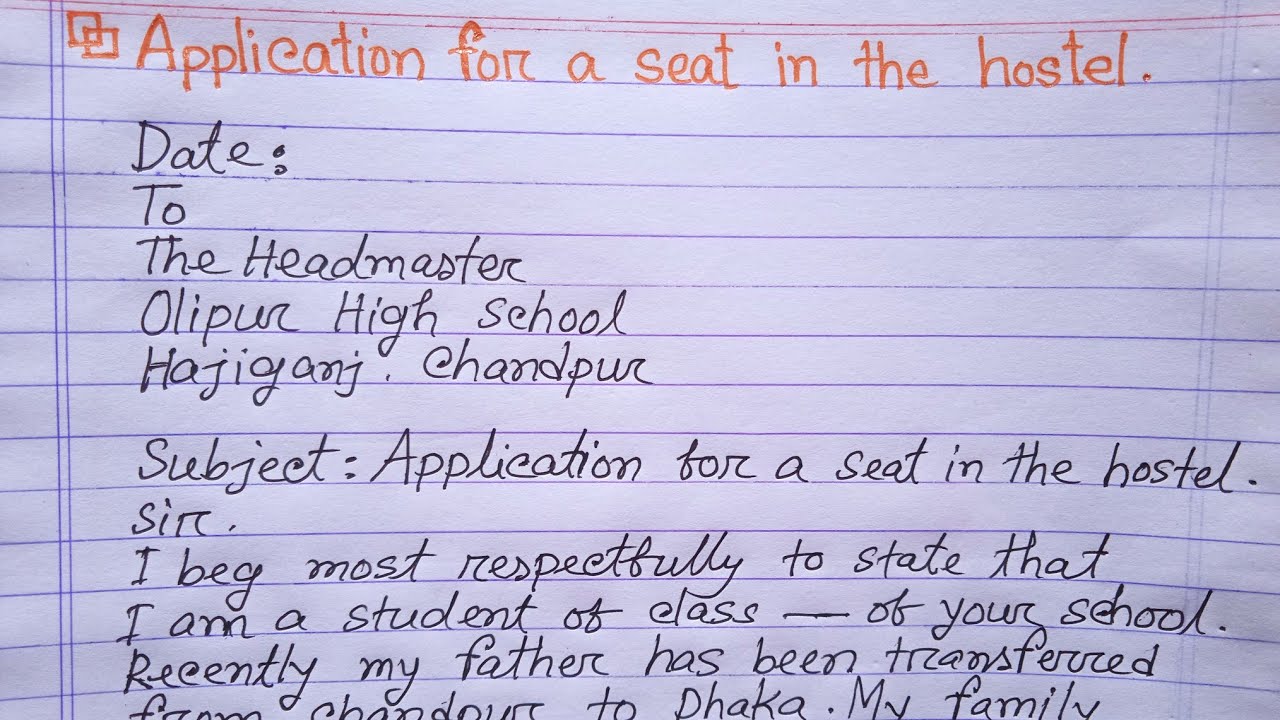 Application for a seat in the hostel.
Date:
To
The Headmaster
Olipur High School
Hajiganj. Chandpur
Subject: Application for a seat in the hostel.
Sir.
I beg most respectfully to state that
I am a student of class — of your school.
Recently my father has been transferred
from Chandpur to Dhaka. My family